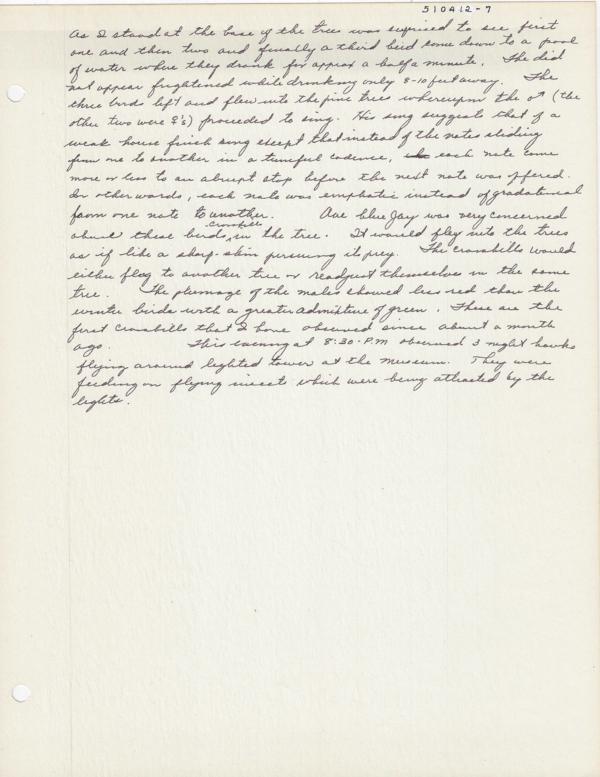 510A12-7
As I stood at the base of the trees was surprised to see first
one and then two and finally a third bird come down to a pool
of water where they drank for approx a half a minute. The did
not appear frightened while drinking only 8-10 feet away. The
three birds left and flew into the pine trees whereupon the ♂ (the
other two were ♀'s) proceeded to sing. His song suggests that of a
weak house finch song except that instead of the notes sliding
from one to another in a tuneful cadence, each note came
more or less to an abrupt stop before the next note was offered.
In other words, each note was emphatic instead of gradational
from one note to another. One blue Jay was very concerned
crossbills
about these birds in the tree. It would fly into the trees
as if like a sharp-shin pursuing its prey. The crossbills would
either flog to another tree or readjust themselves in the same
tree. The plumage of the males showed less red than the
winter birds with a greater admixture of green. These are the
first Crossbills that I have observed since about a month
ago. This evening at 8:30 P.M observed 3 night hawks
flying around lighted tower at the Museum. They were
feeding on flying insects which were being attracted by the
lights.